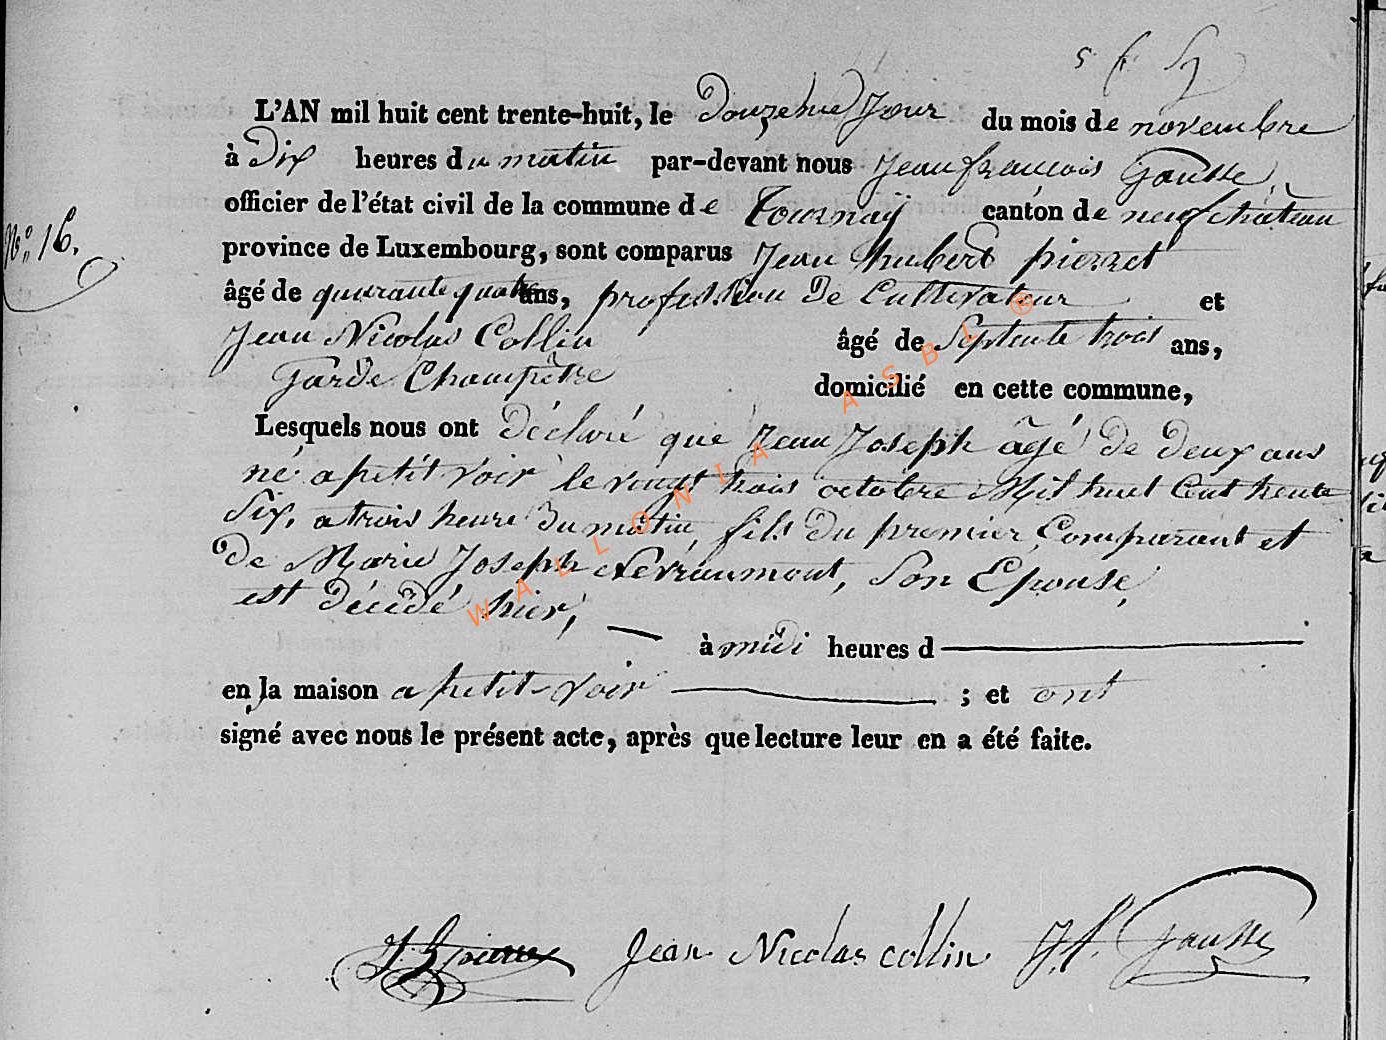 L'AN mil huit cent trente-huit, le Douzeme Jour du mois de novembre
à Dix heures du matin par-devant nous Jean françois Gausse,
officier de l'état civil de la commune de Tournaÿ canton de neufchâteau
N.° 16.
province de Luxembourg, sont comparus Jean hubert pierret
âgé de quarante quatre ans, profession de Cultivateur et
Jean Nicolas Collin âgé de Septente trois ans,
Garde Champêtre domicilié en cette commune,
Lesquels nous ont Déclaré que Jean Joseph âgé de deux ans
né a petit voir le vingt trois octobre Mil huit Cent trente
Six, a trois heure du matin, fils du premier Comparant et
de Marie Joseph Levraumont, Son Epouse,
est décédé hier,
à midi heures d
en la maison a petit-voir ; et ont
signé avec nous le présent acte, après que lecture leur en a été faite.
Jean Nicolas collin J.f. Gausse
WALLONIA ASBL ®